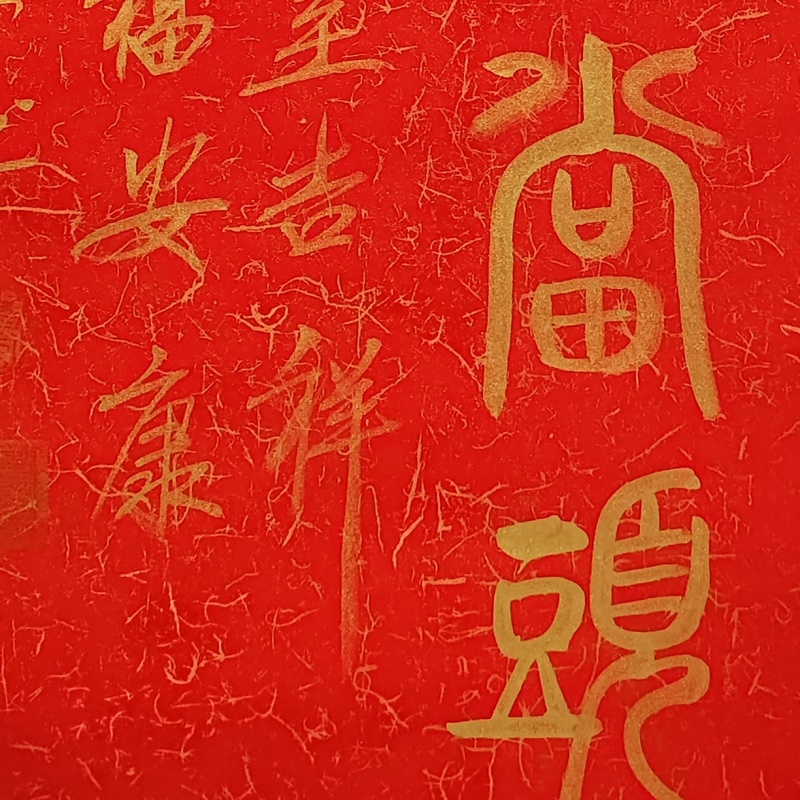 當頭
至吉祥
福安康